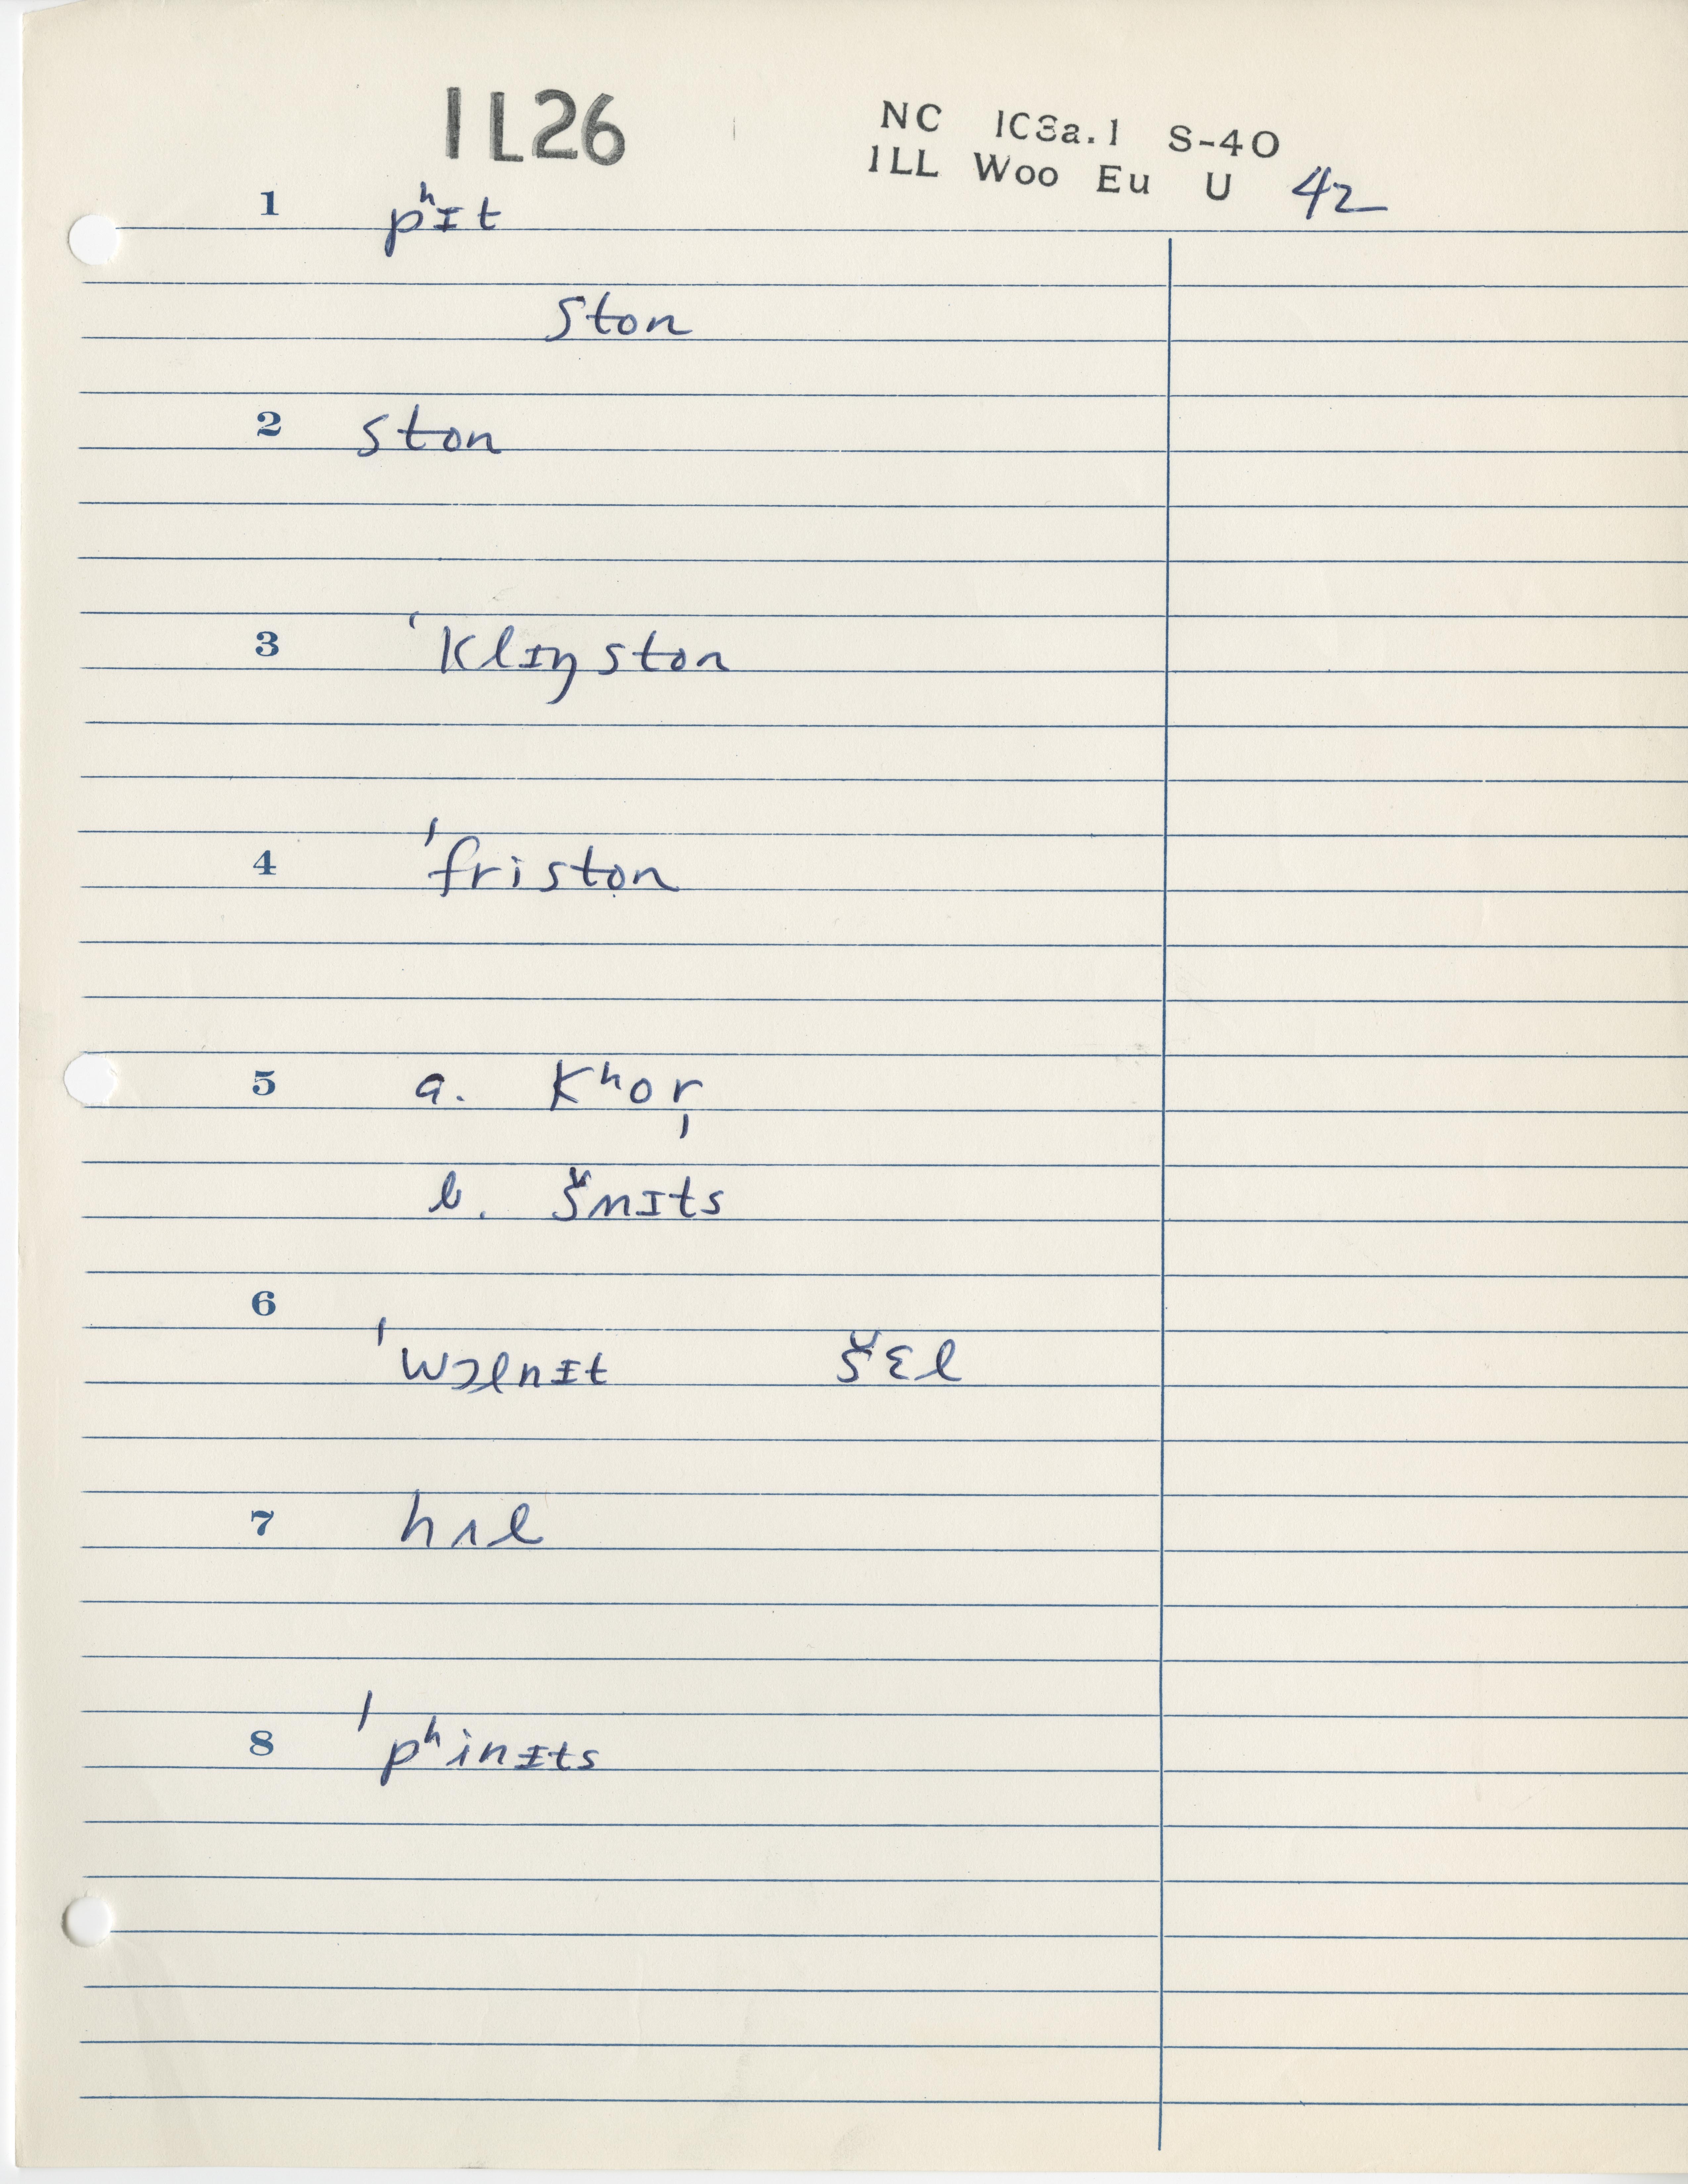 1L26
NC 1C3a.1 S-40
1LL Woo Eu U 42
1 pʰɪt
ston
2 ston
3 ˈklɪŋston
4 ˈfriston
5 a. Kʰor̩
b. š̌nɪts
6
ˈwɔlnɨt šɛl
7 hʌl
8 ˈpʰinɨts